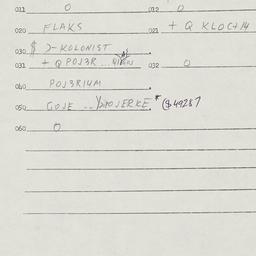 011 O 012 O
020 FLAKS 021 + Q KLOCH14
$
030 D-KOLONIST
031 + Q POJ3R ... 032 O
040 POJ3R14M
050 GOJE ... * ($49287
060 O